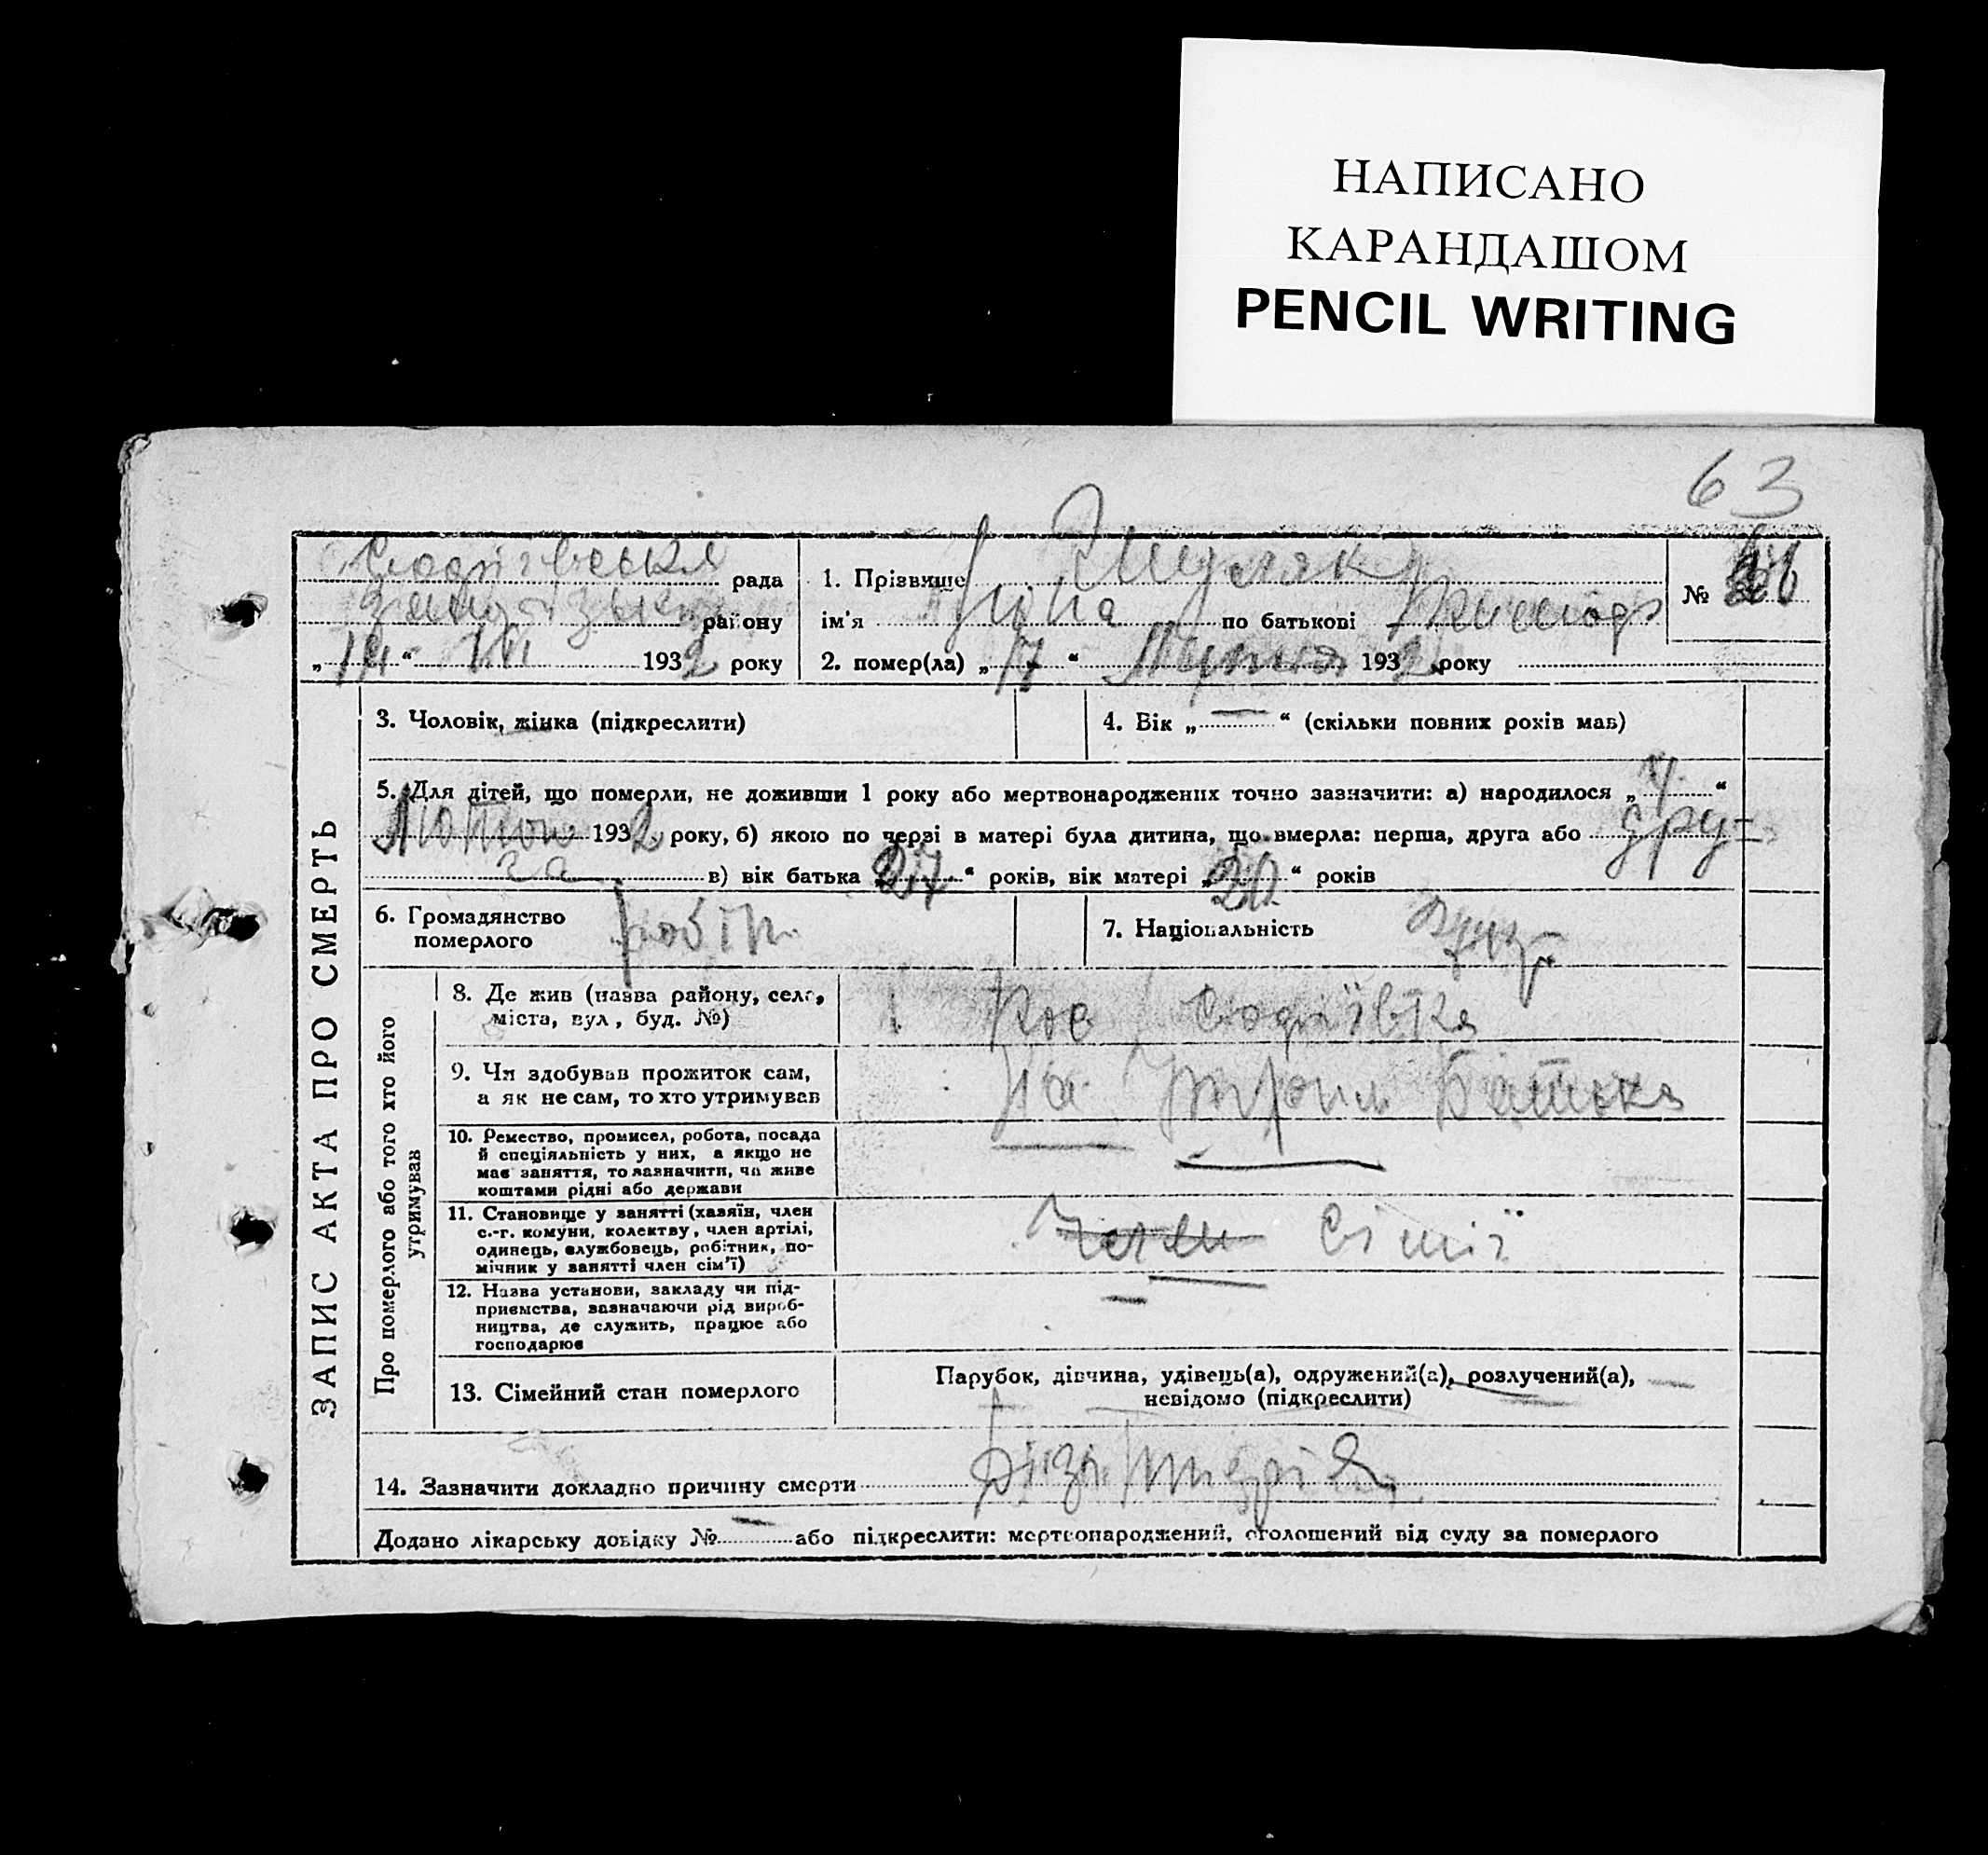 НАПИСАНО
КАРАНДАШОМ
PENCIL WRITING
63
рада
району
„19“ 1932 року
1. Прізвище
№
ім'я по батькові
2. помер(ла) „17“ 1932 року
ЗАПИС АКТА ПРО СМЕРТЬ
3. Чоловік, жінка (підкреслити)
4. Вік „—“ (скільки повних рохів мав)
5. Для дітей, що померли, не доживши 1 року або мертвонароджених точно зазначити: а) народилося „ “
Лютого 1932 року, б) якою по черзі в матері була дитина, що вмерла: перша, друга або дру-
га в) вік батька „27“ років, вік матері „20“ років
6. Громадянство
померлого
7. Національність
Про померлого або того хто його
утримував
8. Де жив (назва району, село,
міста, вул, буд. №)
9. Чи здобував прожиток сам,
а як не сам, то хто утримував
На утрим Батька
10. Ремество, промисел, робота, посада
й спеціяльність у них, а якщо не
має заняття, то зазначити, чи живе
коштами рідні або держави
11. Становище у занятті (хазяїн, член
с.-г. комуни, колектву, член артілі,
одинець, службовець, робітник, по-
мічник у занятті член сім'ї)
Член Сімії
12. Назва установи, закладу чи під-
приємства, зазначаючи рід вироб-
ництва, де служить, працює або
господарює
13. Сімейний стан померлого
Парубок, дівчина, удівець(а), одружений(а), розлучений(а),
невідомо (підкреслити)
14. Зазначити докладно причину смерти
Додано лікарську довідку № — або підкреслити: мертвонароджений, оголошений від суду за померлого